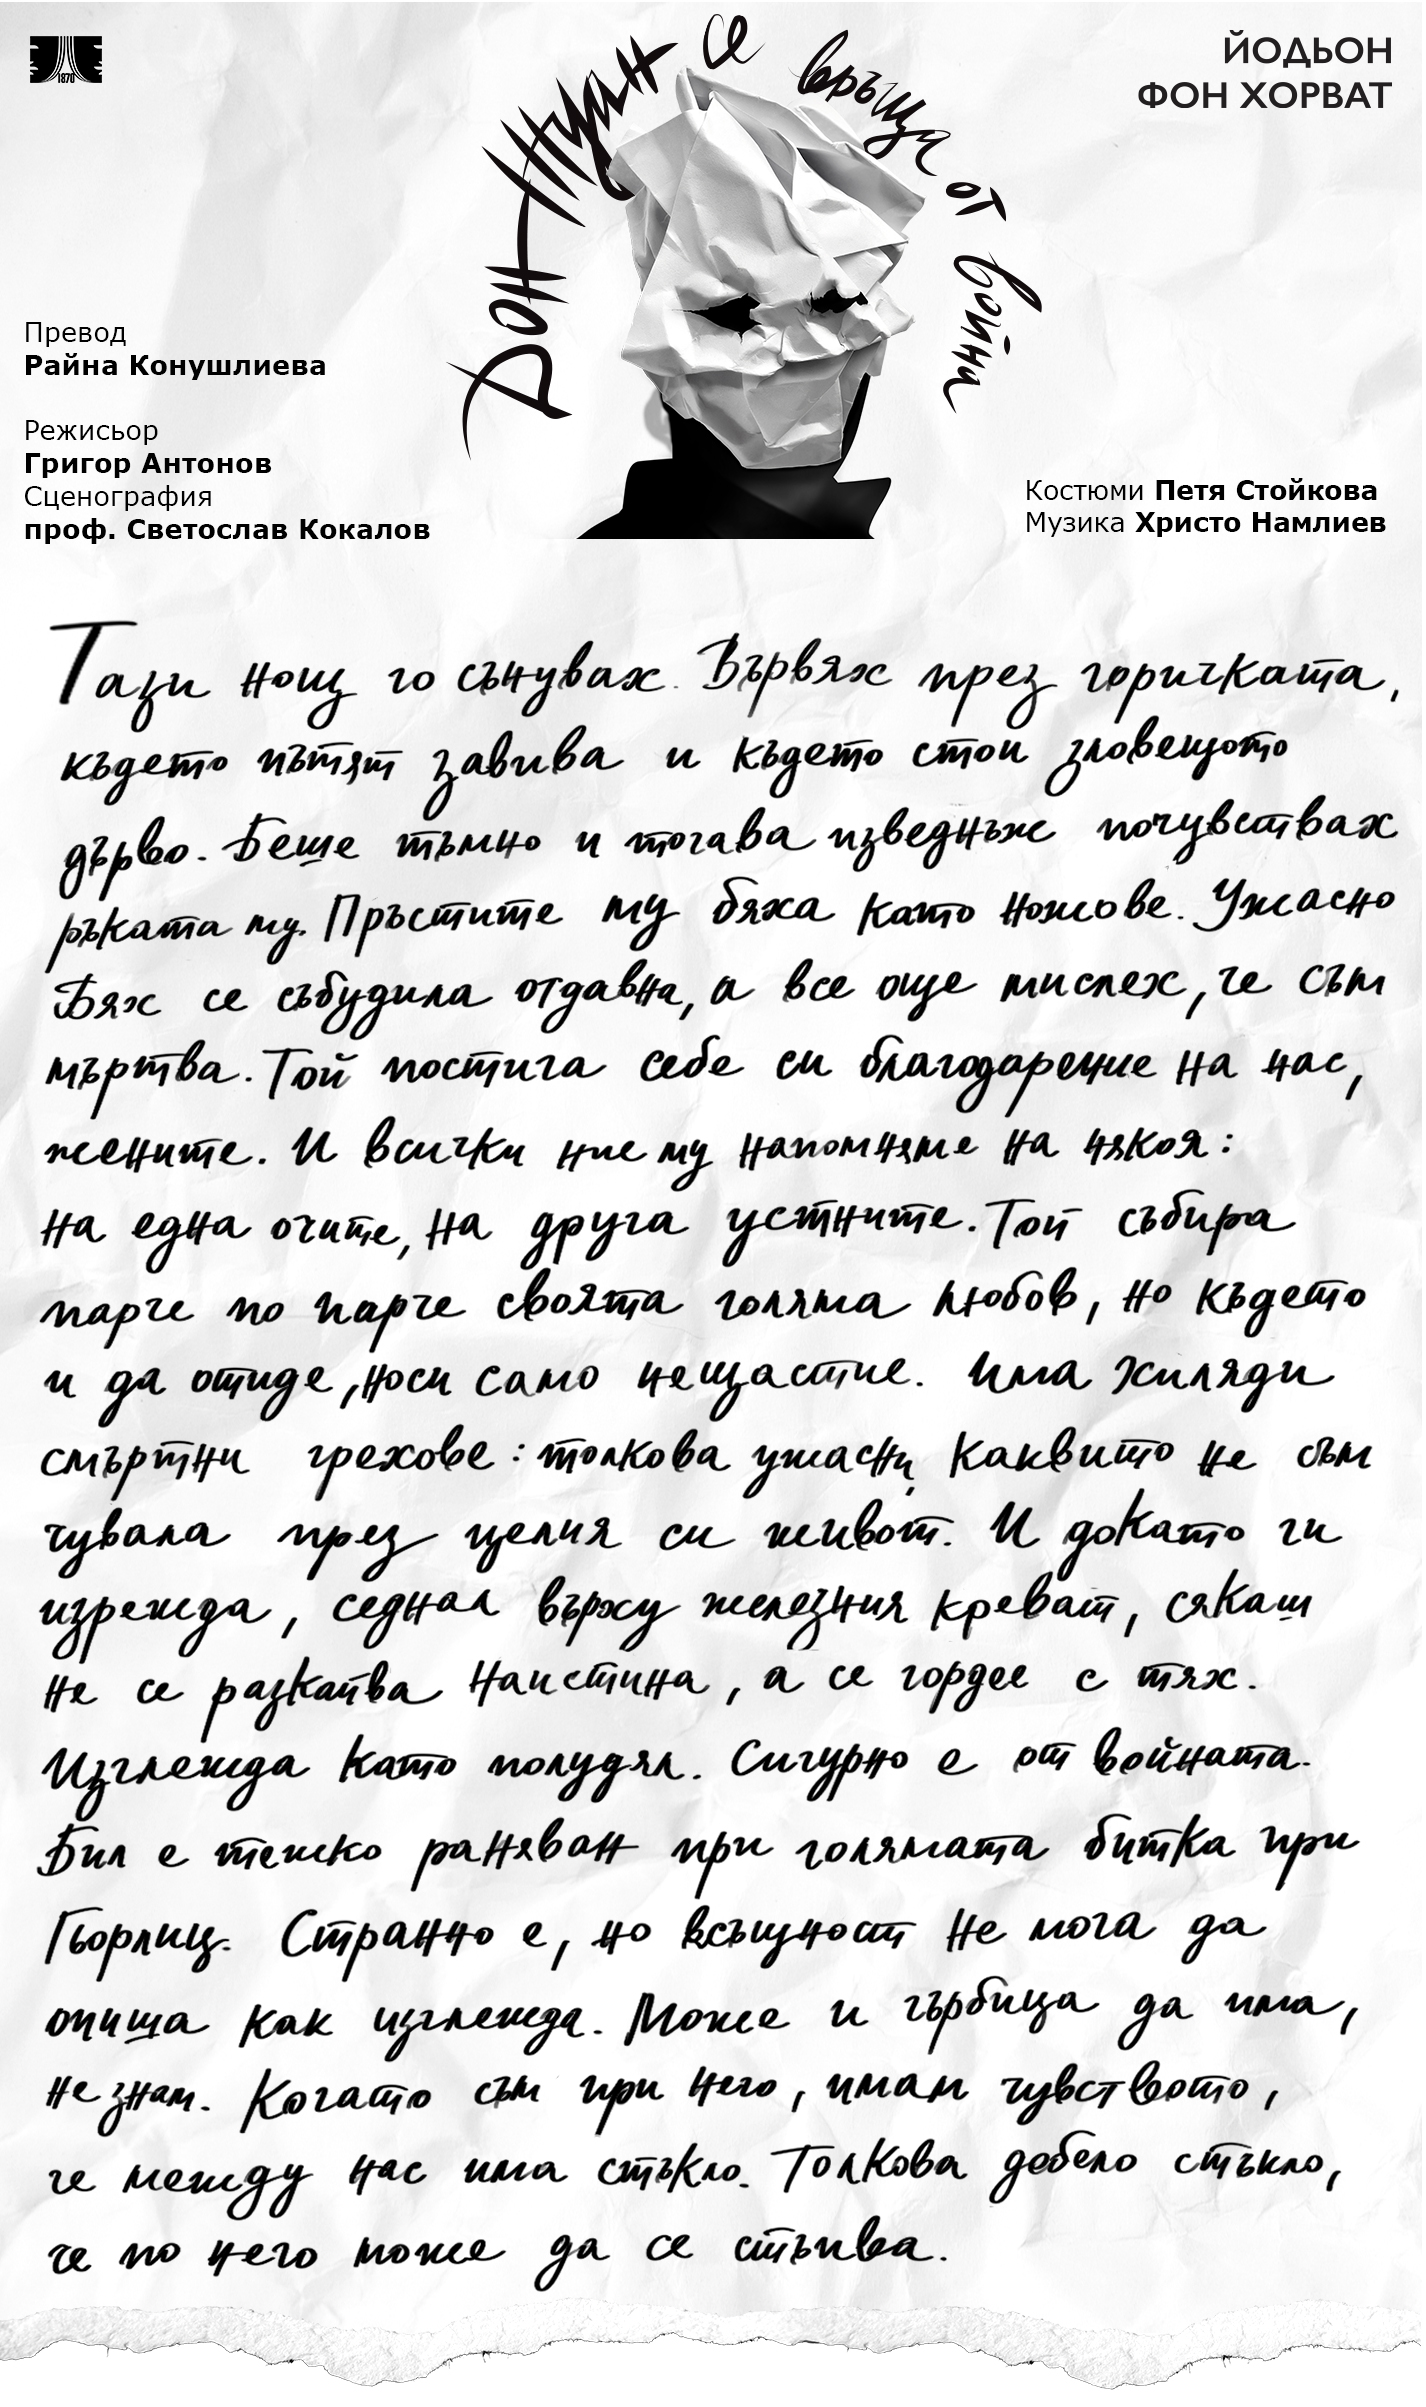 1870
Дон Жуан се връща от война
ЙОДЬОН
ФОН ХОРВАТ
Превод
Райна Конушлиева
Режисьор
Григор Антонов
Сценография
проф. Светослав Кокалов
Костюми Петя Стойкова
Музика Христо Намлиев
Тази нощ го сънувах. Вървях през горичката,
където пътят завива и където стои зловещото
дърво. Беше тъмно и тогава изведнъж почувствах
ръката му. Пръстите му бяха като ножове. Ужасно
Бях се събудила отдавна, а все още мислех, че съм
мъртва. Той постига себе си благодарение на нас,
жените. И всички ние му напомняме на някоя:
на една очите, на друга устните. Той събира
парче по парче своята голяма любов, но където
и да отиде, носи само нещастие. Има хиляди
смъртни грехове: толкова ужасни, каквито не съм
чувала през целия си живот. И докато ги
изрежда, седнал върху железния креват, сякаш
не се разкайва наистина, а се гордее с тях.
Изглежда като полудял. Сигурно е от войната.
Бил е тежко раняван при голямата битка при
Гьорлиц. Странно е, но всъщност не мога да
опиша как изглежда. Може и гърбица да има,
не знам. Когато съм при него, имам чувството,
че между нас има стъкло. Толкова дебело стъкло,
че по него може да се стъпва.